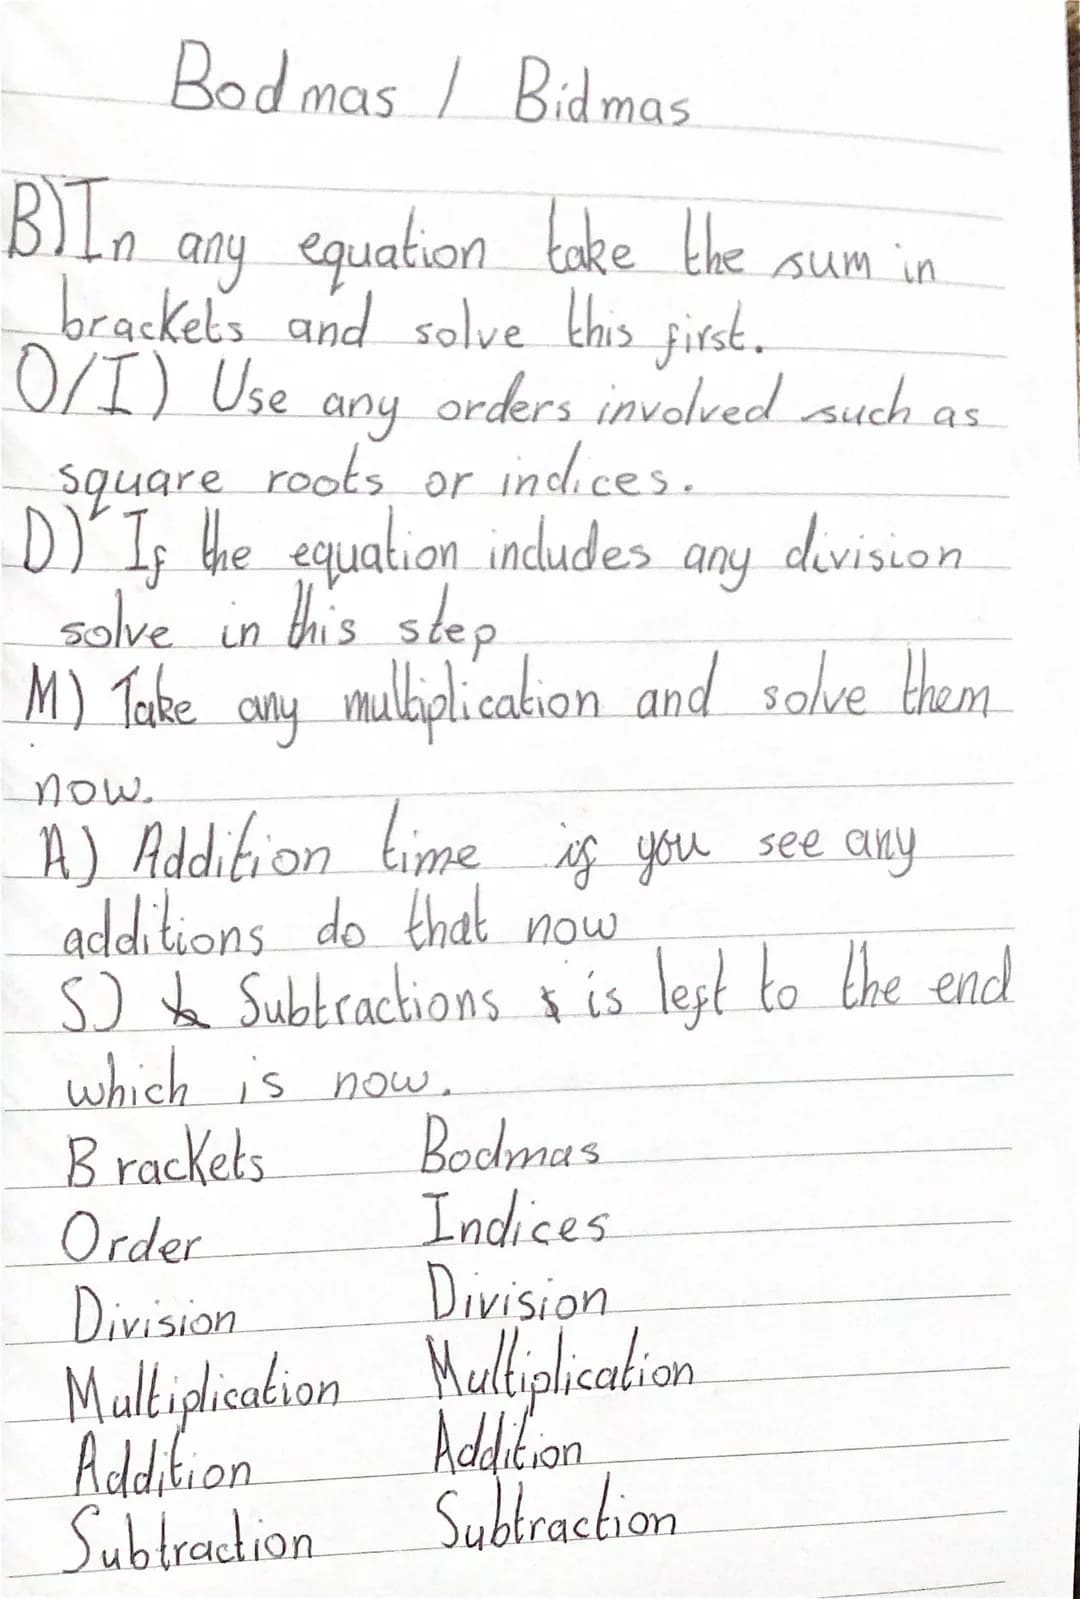 Bodmas / Bidmas
B) In any equation take the sum in
brackets and solve this first.
O/I) Use any orders involved such as
square roots or indices.
D) If the equation includes any division
solve in this step
M) Take any multiplication and solve them
now.
A) Addition time if you see any
additions do that now
S) Subtractions is left to the end
which is now.
Brackets Bodmas
Order Indices
Division Division
Multiplication Multiplication
Addition Addition
Subtraction Subtraction